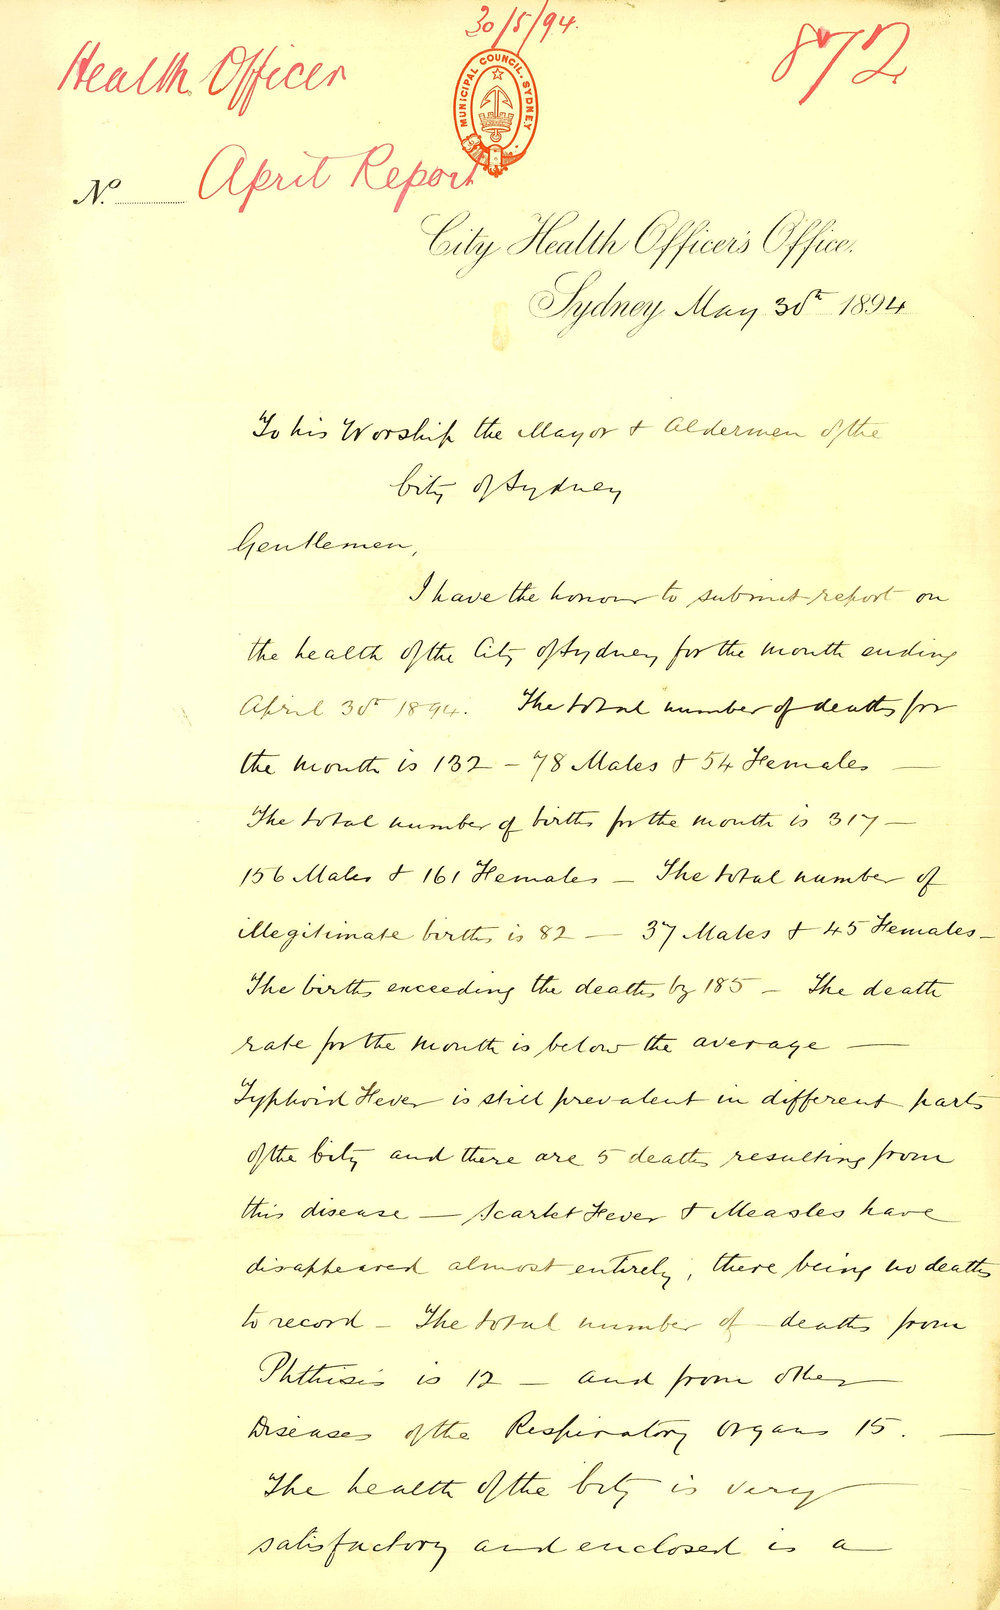 30/5/94.
Health Officer
872
MUNICIPAL COUNCIL. SYDNEY
No. April Report
City Health Officer's Office.
Sydney May 30th 1894
To his Worship the Mayor & Aldermen of the
City of Sydney
Gentlemen,
I have the honour to submit report on
the health of the City of Sydney for the month ending
April 30th 1894. The total number of deaths for
the month is 132 – 78 Males & 54 Females —
The total number of births for the month is 317 –
156 Males & 161 Females – The total number of
illegitimate births is 82 — 37 Males & 45 Females –
The births exceeding the deaths by 185 – The death
rate for the month is below the average —
Typhoid Fever is still prevalent in different parts
of the City and there are 5 deaths resulting from
this disease — Scarlet Fever & Measles have
disappeared almost entirely, there being no deaths
to record – The total number of deaths from
Phthisis is 12 – and from other
Diseases of the Respiratory organs 15. —
The health of the City is very
satisfactory and enclosed is a